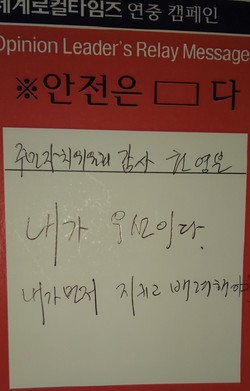 세계로컬타임즈 연중 캠페인
Opinion Leader's Relay Message
※안전은 □ 다
주민자치위원회 감사
내가 우선이다.
내가먼저 지키고 배려해야